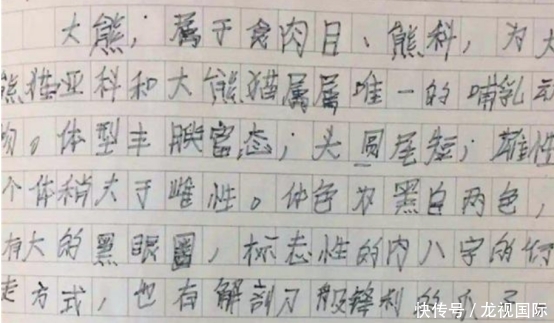 大熊，属于食肉目、熊科，为大
熊猫亚科和大熊猫属属唯一的哺乳动
物。体型丰腴富态，头圆尾短，雄性
个体稍大于雌性。体色为黑白两色，
有大的黑眼圈，标志性的内八字的行
走方式，也有解剖刀般锋利的爪子
快传号 / 龙视国际